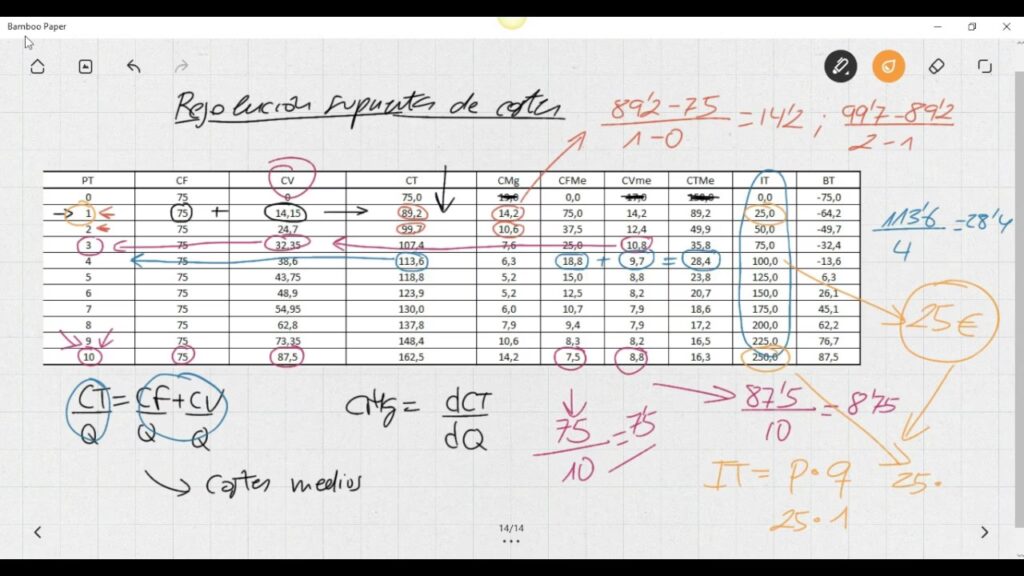 Bamboo Paper
Resolución supuestos de costes
89'2-75 / 1-0 = 14'2 ; 99'7-89'2 / 2-1
PT CF CV CT CMg CFMe CVme CTMe IT BT
0 75 0 75,0 0,0 0,0 -75,0
1 75 + 14,15 89,2 14,2 75,0 14,2 89,2 25,0 -64,2
2 75 24,7 99,7 10,6 37,5 12,4 49,9 50,0 -49,7
3 75 32,35 107,4 7,6 25,0 10,8 35,8 75,0 -32,4
4 75 38,6 113,6 6,3 18,8 + 9,7 = 28,4 100,0 -13,6
5 75 43,75 118,8 5,2 15,0 8,8 23,8 125,0 6,3
6 75 48,9 123,9 5,2 12,5 8,2 20,7 150,0 26,1
7 75 54,95 130,0 6,0 10,7 7,9 18,6 175,0 45,1
8 75 62,8 137,8 7,9 9,4 7,9 17,2 200,0 62,2
9 75 73,35 148,4 10,6 8,3 8,2 16,5 225,0 76,7
10 75 87,5 162,5 14,2 7,5 8,8 16,3 250,0 87,5
113'6 / 4 = 28'4
25€
CT/Q = CF/Q + CV/Q
CMg = dCT/dQ
75/10 = 7'5
87'5/10 = 8'75
Costes medios
IT = p·q 25·
25·1
14/14